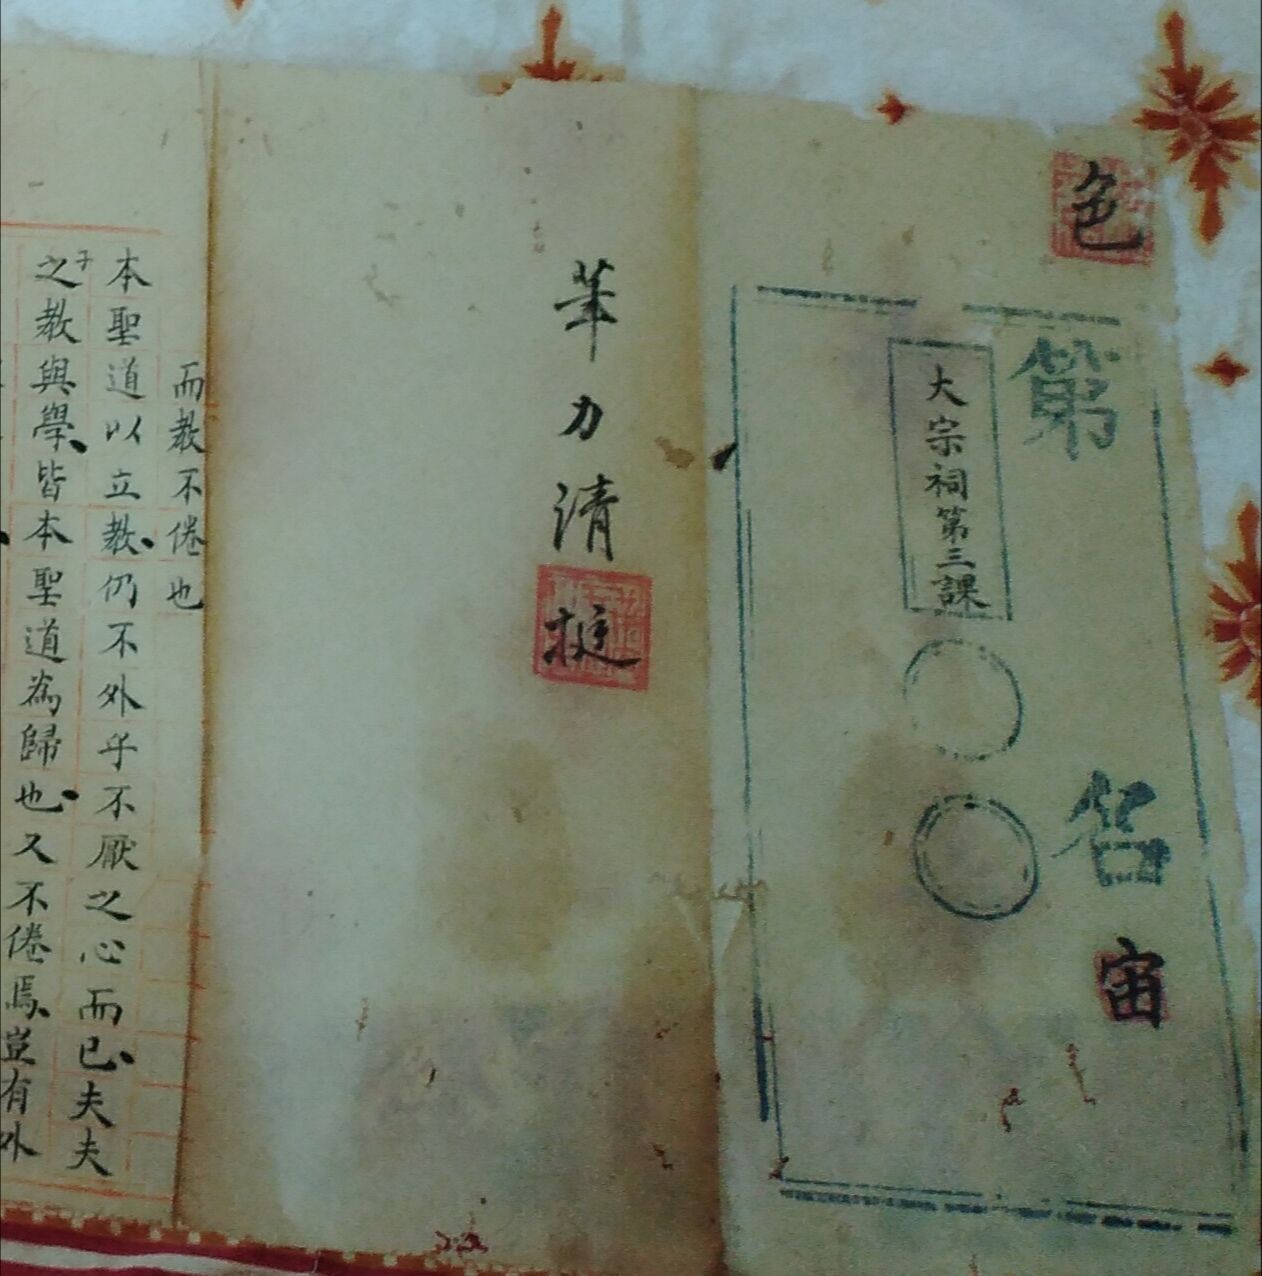 色
第 名 宙
大宗祠第三課
筆力清挺
而教不倦也
本聖道以立教仍不外乎不厭之心而已夫夫
子之教與學皆本聖道為歸也又不倦焉豈有外